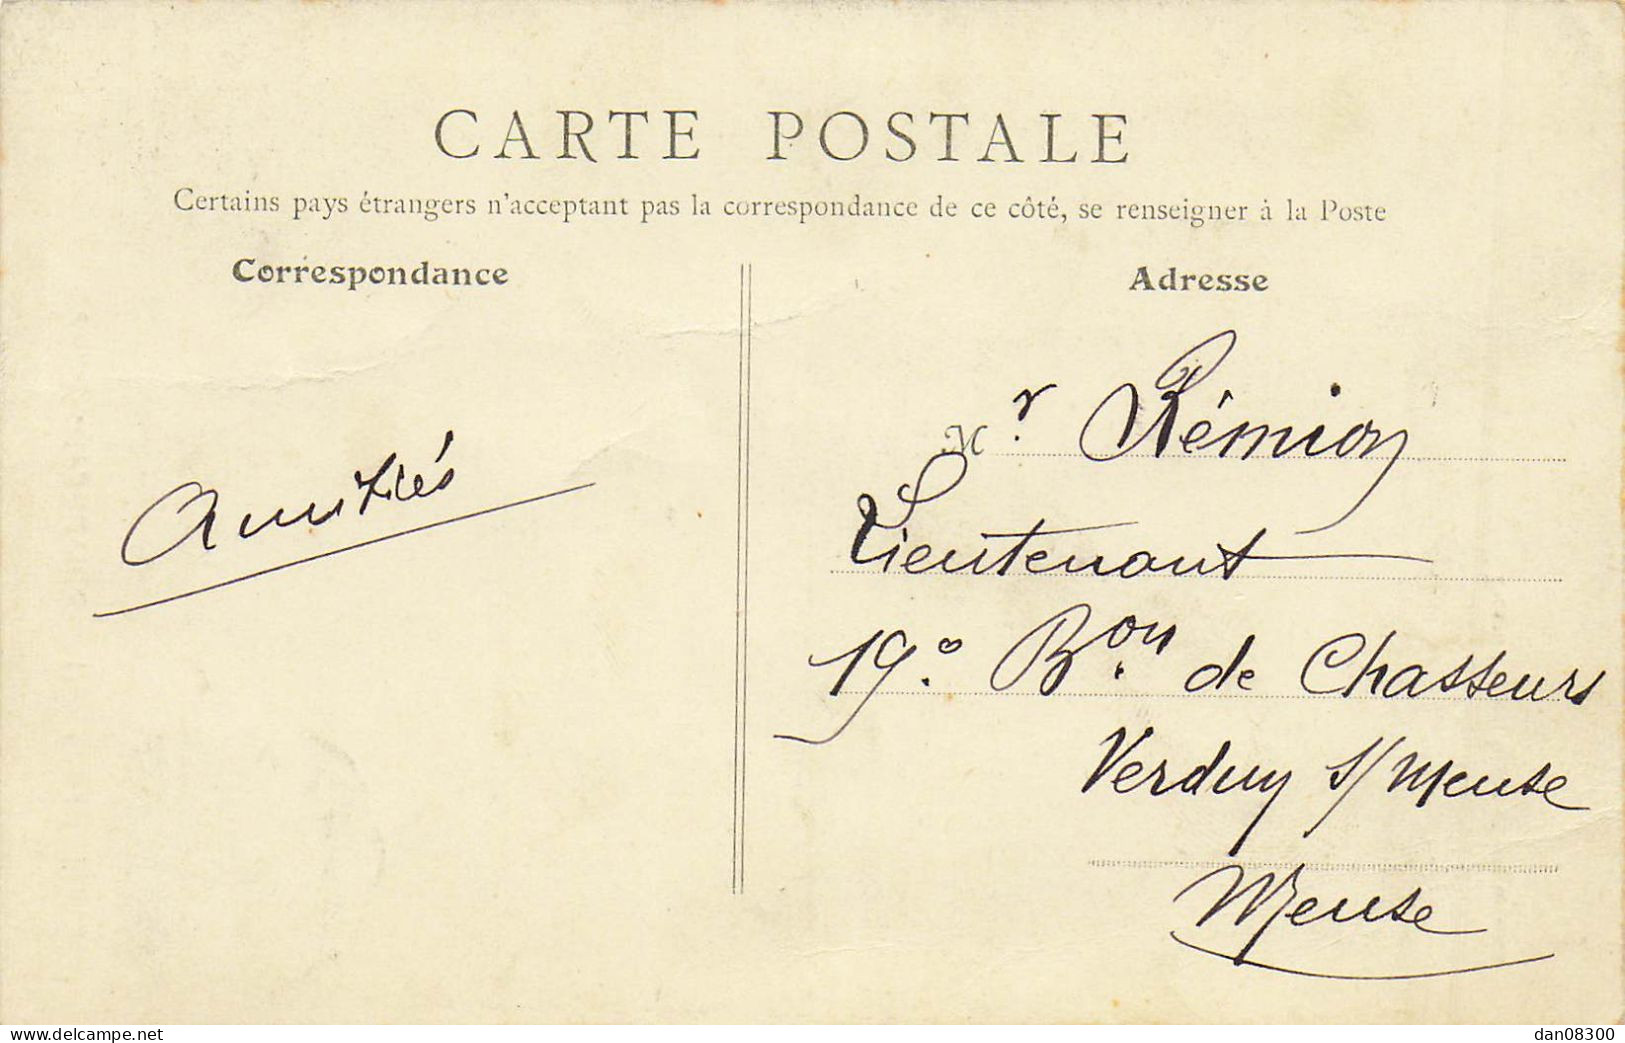 CARTE POSTALE
Certains pays étrangers n'acceptant pas la correspondance de ce côté, se renseigner à la Poste
Correspondance
Adresse
Amitiés
Mr. Rémion
Lieutenant
19e. Bon. de Chasseurs
Verdun s/Meuse
Meuse
www.delcampe.net
dan08300